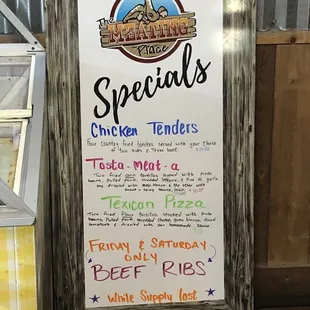 The
MEATING
Place
Specials
Chicken Tenders
Four country fried tenders served with your choice
of two sides & Texas toast
Tosta-meat-a
Two fried corn tortillas topped with pinto
beans, pulled pork, shredded lettuce, & pico de gallo
Texican Pizza
Two fried flour tortillas stacked with pinto
beans, pulled pork, shredded cheese,
FRIDAY & SATURDAY
ONLY
BEEF RIBS
While Supply last